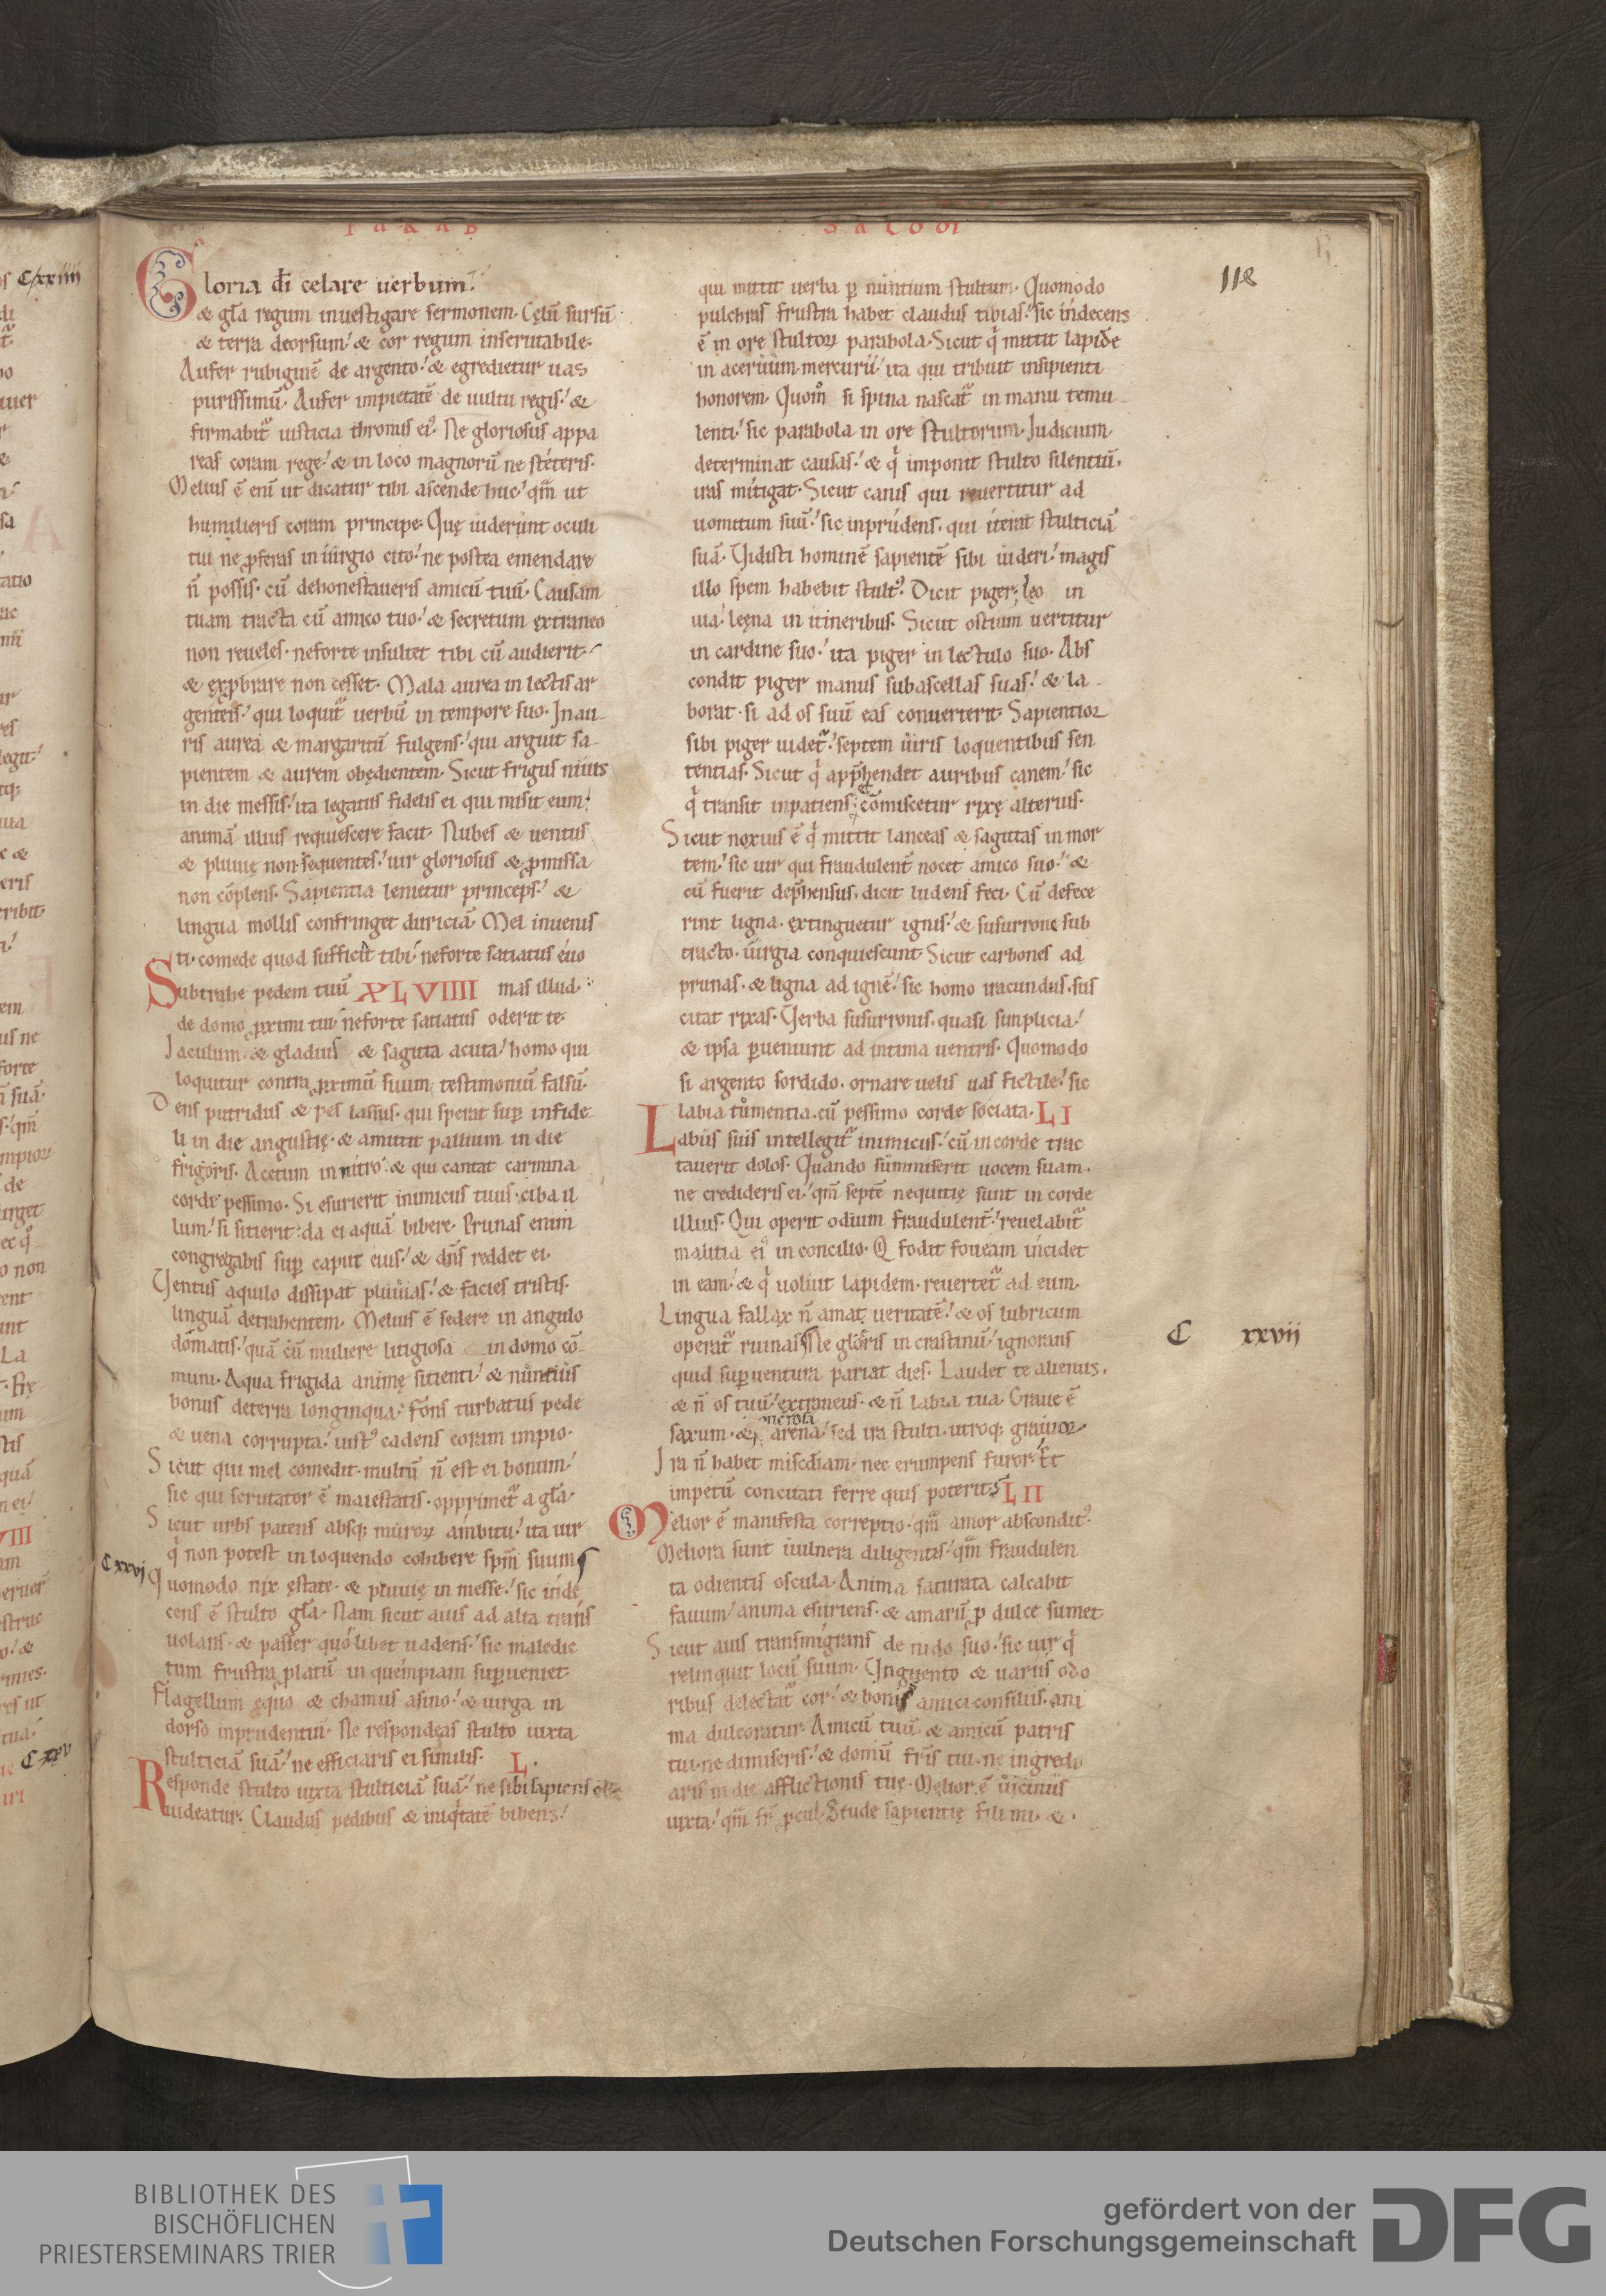 PARAB
SALOM
118
Gloria dī celare uerbum.
& gła regum inuestigare sermonem. Cęlū sursū
& terra deorsum. & cor regum inscrutabile.
Aufer rubiginē de argento. & egredietur uas
purissimū. Aufer impietatē de uultu regis. &
firmabit᷑ iusticia thronus ei᷒. Ne gloriosus appa
reas coram rege. & in loco magnorū ne steteris.
Melius ē eni ut dicatur tibi ascende huc. qm̄ ut
humilieris coram principe. Quę uiderunt oculi
tui ne ꝓferas in iurgio cito. ne postea emendare
n̄ possis. cū dehonestaueris amicū tuū. Causam
tuam tracta cū amico tuo. & secretum extraneo
non reueles. neforte insultet tibi cū audierit.
& exꝓbrare non cesset. Mala aurea in lectis ar
genteis. qui loquit᷑ uerbū in tempore suo. Inau-
ris aurea & margaritū fulgens. qui arguit sa-
pientem & aurem obędientem. Sicut frigus niuis
in die messis. ita legatus fidelis ei qui misit eum.
animā illius requiescere facit. Nubes & uentus
& pluuię non sequentes. uir gloriosus & ꝓmissa
non cōplens. Sapientia lenietur princeps. &
lingua mollis confringet duriciā. Mel inuenis
ti. comede quod sufficit tibi neforte satiatus euo
Subtrahe pedem tuū XLVIIII mas illud.
de domo ꝓximi tui neforte satiatus oderit te.
Iaculum & gladius & sagitta acuta. homo qui
loquitur contra ꝓximū suum testimoniū falsū.
Dens putridus & pes lassus. qui sperat suꝑ infide
li in die angustię. & amittit pallium in die
frigoris. Acetum in nitro. & qui cantat carmina
corde pessimo. Si esurierit inimicus tuus. ciba il
lum. si sitierit. da ei aquā bibere. Prunas enim
congregabis suꝑ caput eius. & dn̄s reddet ei.
Ventus aquilo dissipat pluuias. & facies tristis.
linguā detrahentem. Melius ē sedere in angulo
domatis. quā cū muliere litigiosa in domo cō-
muni. Aqua frigida animę sitienti. & nuntius
bonus deterra longinqua. Fons turbatus pede
& uena corrupta. iust᷒ cadens coram impio.
Sicut qui mel comedit multū n̄ est ei bonum.
sic qui scrutator ē maiestatis. opprimet᷑ a gła.
Sicut urbs patens absq; muroꝝ ambitu. ita uir
C xxvj
q̇ non potest in loquendo cohibere spm̄ suum
Quomodo nix ęstate. & pluuię in messe. sic inde
cens ē stulto gła. Nam sicut auis ad alta trans
uolans. & passer quolibet uadens. sic maledic
tum frustra ꝓlatū in quempiam suꝑueniet.
Flagellum equo & chamus asino. & uirga in
dorso inprudentiū. Ne respondeas stulto iuxta
stulticiā suā. ne efficiaris ei similis. L.
Responde stulto iuxta stulticiā suā. ne sibi sapiens esse
uideatur. Claudus pedibus & iniq̇tatē bibens.
qui mittit uerba ꝑ nuntium stultum. Quomodo
pulchras frustra habet claudus tibias. sic indecens
ē in ore stultoꝝ parabola. Sicut q̇ mittit lapidē
in aceruum mercurii. ita qui tribuit insipienti
honorem. Quom̊ si spina nascat᷑ in manu temu-
lenti. sic parabola in ore stultorum. Iudicium
determinat causas. & q̇ imponit stulto silentiū.
iras mitigat. Sicut canis qui reuertitur ad
uomitum suū. sic inprudens. qui iterat stulticiā
suā. Vidisti hominē sapientē sibi uideri. magis
illo spem habebit stult᷒. Dicit piger. leo in
uia. leęna in itineribus. Sicut ostium uertitur
in cardine suo. ita piger in lectulo suo. Abs
condit piger manus subascellas suas. & la-
borat. si ad os suū eas conuerterit. Sapientior
sibi piger uidet᷑. septem uiris loquentibus sen
tentias. Sicut q̇ app̄hendet auribus canem. sic
q̇ transit inpatiens. cōmiscetur rixę alterius.
Sicut noxius ē q̇ mittit lanceas & sagittas in mor
tem. sic uir qui fraudulent̄ nocet amico suo. &
cū fuerit dep̄hensus. dicit ludens feci. Cū defece
rint ligna. extinguetur ignis. & susurrone sub
tracto. iurgia conquiescunt. Sicut carbones ad
prunas. & ligna ad ignē. sic homo iracundus. sus
citat rixas. Verba susurronis. quasi simplicia.
& ipsa ꝑueniunt ad intima uentris. Quomodo
si argento sordido. ornare uelis uas fictile. sic
labia tumentia. cū pessimo corde sociata. LI
Labiis suis intellegit᷑ inimicus. cū in corde trac
tauerit dolos. Quando summiserit uocem suam.
ne credideris ei. qm̄ septē nequitię sunt in corde
illius. Qui operit odium fraudulent̄. reuelabit᷑
malitia ei᷒ in concilio. Q fodit foueam incidet
in eam. & q̇ uoluit lapidem. reuertet᷑ ad eum.
Lingua fallax n̄ amat ueritatē. & os lubricum
operat᷑ ruinas Ne glorieris in crastinū. ignorans
C xxvii
quid suꝑuentura pariat dies. Laudet te alienus.
& n̄ os tuū. extraneus. & n̄ labia tua. Graue ē
onerosa
saxum. & arena. sed ira stulti. utroq; grauior.
Ira n̄ habet misc̄diam. nec erumpens furor. Et
impetū concitati ferre quis poterit. LII
Melior ē manifesta correptio. qm̄ amor abscondit᷒.
Meliora sunt uulnera diligentis. qm̄ fraudulen
ta odientis oscula. Anima saturata calcabit
fauum. anima esuriens. & amarū ꝓ dulce sumet
Sicut auis transmigrans de nido suo. sic uir q̇
relinquit locū suum. Vnguento & uariis odo
ribus delectat᷑ cor. & bonis amici consiliis. ani
ma dulcoratur. Amicū tuū & amicū patris
tui. ne dimiseris. & domū fr̄is tui. ne ingredi
aris in die afflictionis tuę. Melior ē uicinus
iuxta. qm̄ fr̄ ꝓcul. Stude sapientię fili mi. &.
C xxiiii
C xxv
BIBLIOTHEK DES
BISCHÖFLICHEN
PRIESTERSEMINARS TRIER
gefördert von der
Deutschen Forschungsgemeinschaft
DFG